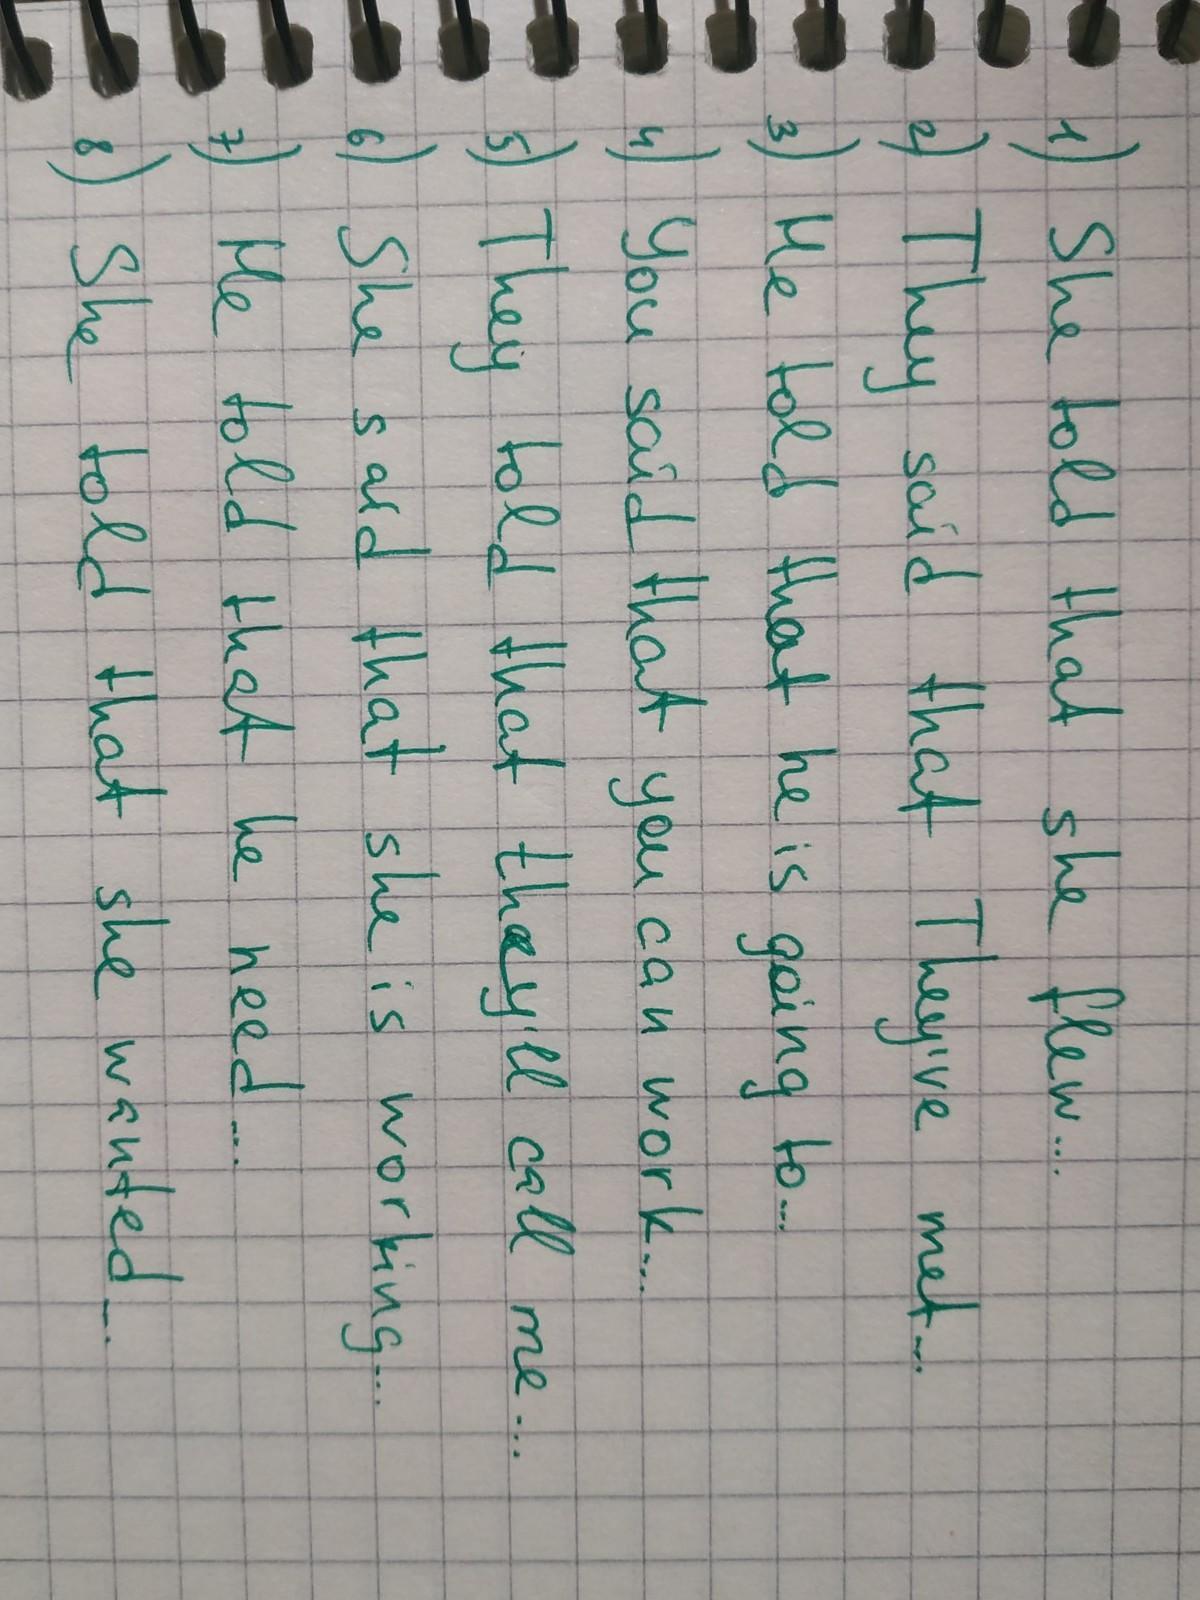 1) She told that she flew...
2) They said that They've met...
3) He told that he is going to...
4) You said that you can work...
5) They told that they'll call me...
6) She said that she is working...
7) He told that he need...
8) She told that she wanted...